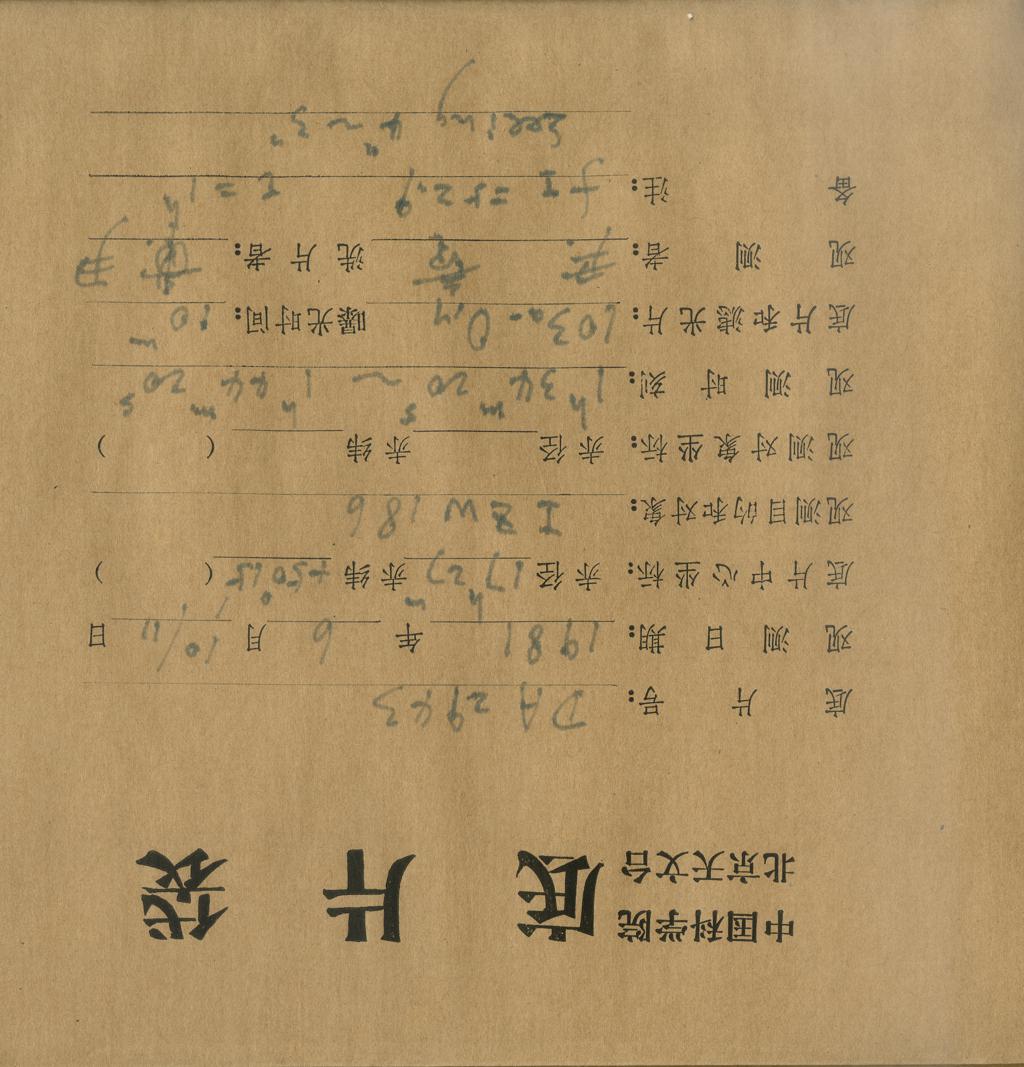 中国科学院
北京天文台
底片袋
底片号: DA 2943
观测日期: 1981年6月10/11日
底片中心坐标: 赤径17ʰ27ᵐ赤纬+50°15′( )
观测目的和对象: I ZW 186
观测对象坐标: 赤径 赤纬 ( )
观测时刻: 1ʰ34ᵐ20ˢ ~ 1ʰ44ᵐ20ˢ
底片和滤光片: 103a-O 曝光时间: 10ᵐ
观测者: 洗片者:
备注: fI=52.9 t=1ʰ
Seeing 4"~3"